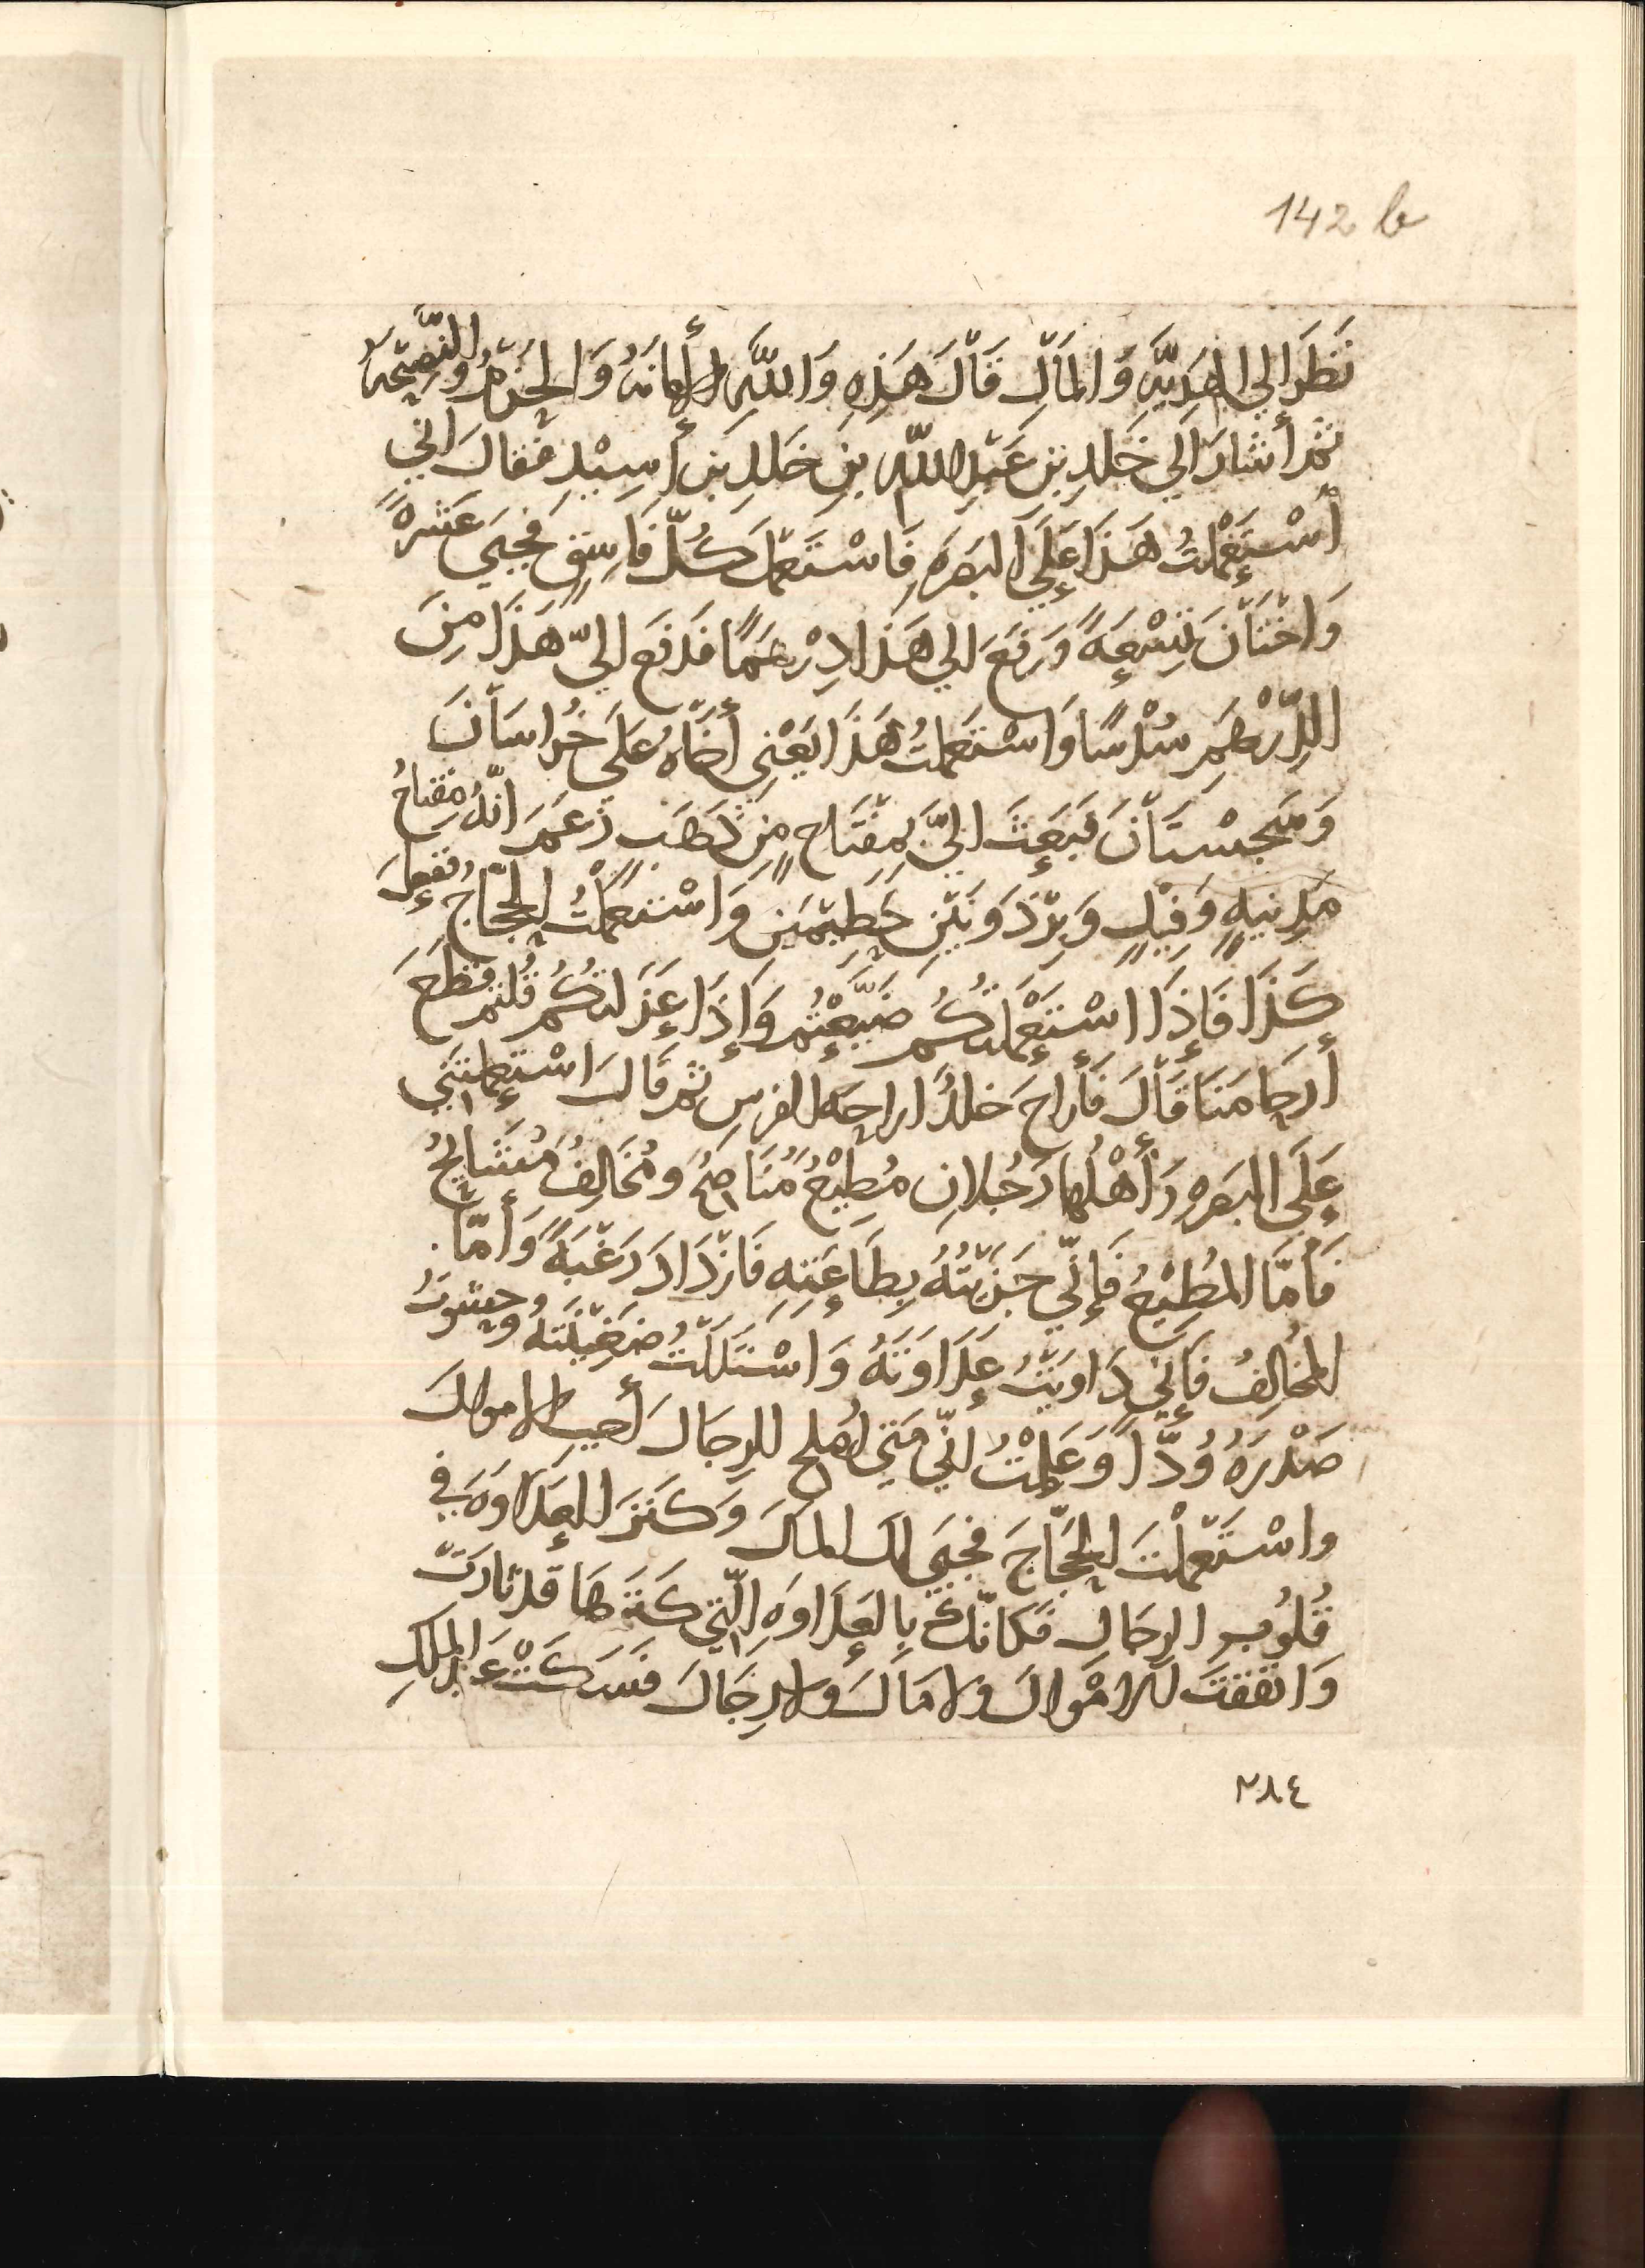 142 b
نَظَرَ الي الهَدِيَّهِ وَالمَالِ قَالَ هَذِهِ وَاللَّهِ الأَمَانَهُ وَالحَزْمُ وَالنَّصِيحَهُ
ثُمَّ أَشَارَ الَي خَلدِ بنِ عَبْدِ اللّهِ بنِ خَلدِ بنِ أَسِيْدٍ فَقالَ انّي
أسْتَعْمَلْتُ هَذَا عَلَي البَصرَهِ فَاسْتَعْمَلَ كُلَّ فَاسِقٍ فجَبَي عَشرهً
وَاخْتَانَ تِسْعَهً وَرَفَعَ الي هَذَا دِرْهَمًا فَدَفَع اليَّ هَذَا مِنَ
الدِّرْهَمِ سُدْسًا وَاسْتَعمَلتُ هَذَا يَعْنِي أَخَاهُ عَلَي خُرَاسَانَ
وَسِجِسْتَانَ فَبَعَثَ اليَّ بِمِفْتَاحٍ مِن ذَهَبٍ زَعَمَ انّهُ مِفتاحُ
مَدِنيهٍ وَفِيْلٍ وَبِرْذَوْنَيْنِ حَطِيْمَيْنِ وَاسْتَعْمَلْتُ الحَجّاجَ فَفَعلَ
كَذَا فَإِذَا اسْتَعْمَلتُكُم ضَيَّعْتُم وَإِذَا عَزَلتُكُم قُلتم قَطَعَ
أَرحَامَنَا قَالَ فَأَراحَ خَلدٌ اراحَهَ الفرسِ ثم قَالَ اسْتَعمَلتَنِي
عَلَي البَصره وَأَهْلُها رَجُلانِ مُطِيْعٌ مُنَاصِحٌ وَمُخَالِفٌ مُشَايِحٌ
فَأمَّا المُطِيْعُ فَإِنّي جَزَيْتُهُ بِطَاعَتِهِ فَازْدَادَ رَغْبَهً وَأَمّا
المُخَالِفُ فَإنّي دَاوَيْتُ عَدَاوَتَهُ وَاسْتَلَلْتُ ضَغِيْنَتهُ وحَشوتُ
صَدْرَهُ وُدًّا وَعَلِمْتُ انّي مَتي اصْلح الرِجَالَ أجبِ الاموالَ
واسْتَعْمَلْتَ الحَجّاجَ فجَبَي لك المالَ وَكَنَزَ العَدَاوَهَ في
قُلُوبِ الرجَالِ فَكَانّكَ بِالعَدَاوَهِ الّتي كَنَزَهَا قد ثارَت
وَانفقتَ الامْوالَ ولا مَالَ ولا رِجَالَ فَسَكَتَ عَبْدُ المَلِكِ
٢٨٤